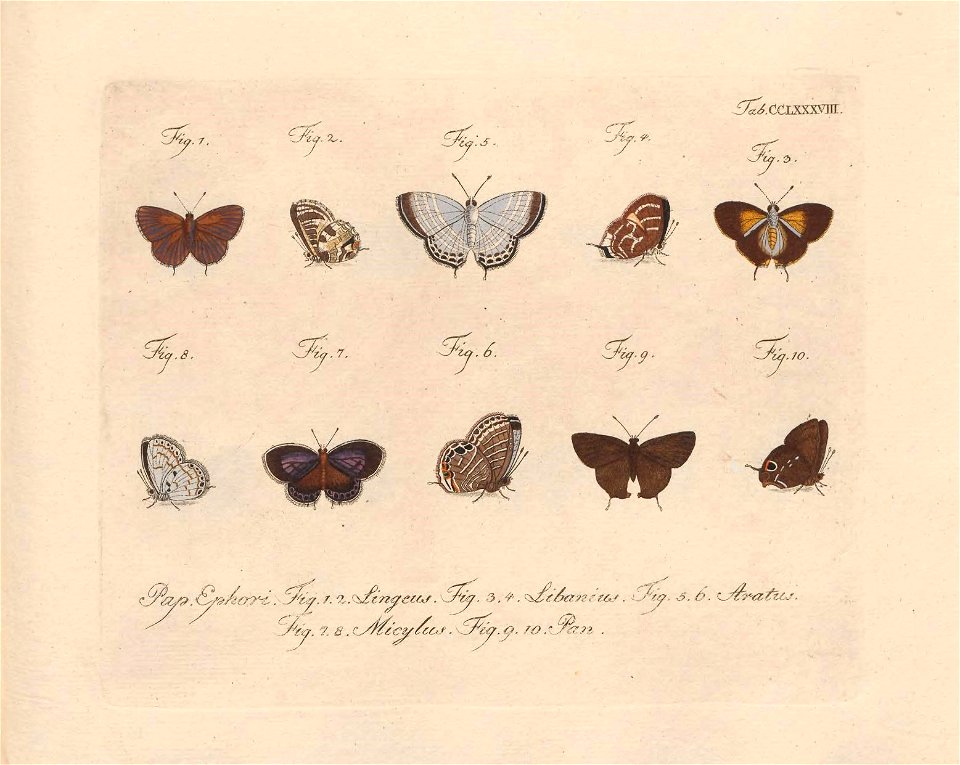 Tab. CCLXXXVIII.
Fig. 1. Fig. 2. Fig. 5. Fig. 4. Fig. 3.
Fig. 8. Fig. 7. Fig. 6. Fig. 9. Fig. 10.
Pap. Ephori. Fig. 1. 2. Lingeus. Fig. 3. 4. Libanius. Fig. 5. 6. Aratus.
Fig. 7. 8. Micylus. Fig. 9. 10. Pan.